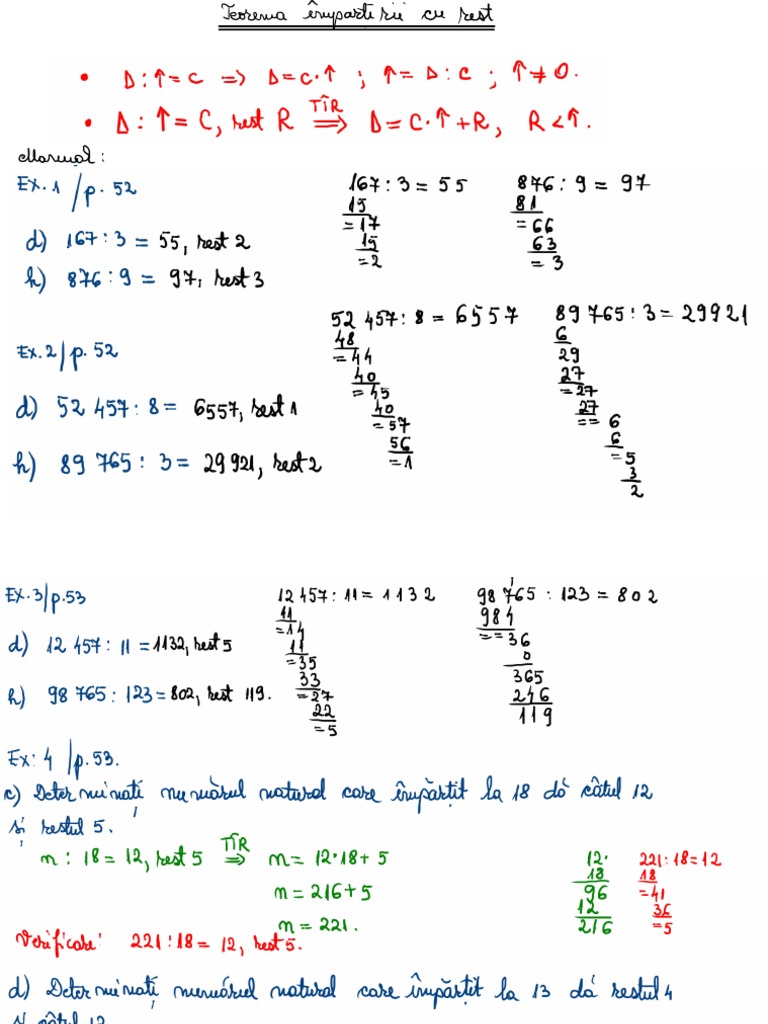 Teorema împărțirii cu rest
• D : Î = C ⇒ D = C · Î ; Î = D : C ; Î ≠ 0.
• D : Î = C, rest R TÎR ⇒ D = C · Î + R, R < Î.
Manual:
Ex. 1 / p. 52
d) 167 : 3 = 55, rest 2
h) 876 : 9 = 97, rest 3
167 : 3 = 55
15
= 17
15
= 2
876 : 9 = 97
81
= 66
63
= 3
Ex. 2 / p. 52
d) 52 457 : 8 = 6557, rest 1
h) 89 765 : 3 = 29 921, rest 2
52 457 : 8 = 6557
48
= 44
40
= 45
40
= 57
56
= 1
89 765 : 3 = 29921
6
29
27
= 27
27
= = 6
6
= 5
3
2
Ex. 3 / p. 53
d) 12 457 : 11 = 1132, rest 5
h) 98 765 : 123 = 802, rest 119.
12 457 : 11 = 1132
11
= 14
11
= 35
33
= 27
22
= 5
98 765 : 123 = 802
984
= = 36
0
365
246
119
Ex: 4 / p. 53.
c) Determinați numărul natural care împărțit la 18 dă câtul 12
și restul 5.
n : 18 = 12, rest 5 TÎR ⇒ n = 12 · 18 + 5
n = 216 + 5
n = 221.
12 ·
18
96
12
216
221 : 18 = 12
18
= 41
36
= 5
Verificare: 221 : 18 = 12, rest 5.
d) Determinați numărul natural care împărțit la 13 dă restul 4
și câtul 12